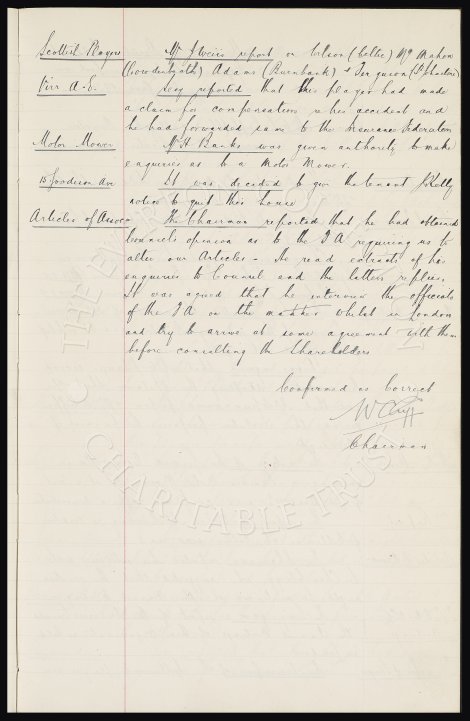 Scottish Players Mr J Weirs report on Wilson (Celtic) McMahon
(Cowdenbeath) Adams (Burnbank) & Ferguson (St Johnstone)
Virr A.E. Secy reported that this player had made
a claim for compensation re his accident and
he had forwarded same to the Insurance Federation
Motor Mower Mr H Banks was given authority to make
enquiries as to a Motor Mower.
15 Goodison Ave It was decided to give the tenant J Kelly
notice to quit this house
Articles of Assoc The Chairman reported that he had obtained
Counsels opinion as to the F A requiring us to
alter our Articles - He read extracts of his
enquiries to Counsel and the latters replies.
It was agreed that he interview the officials
of the F A on the matter whilst in London
and try to arrive at some agreement with them
before consulting the Shareholders
Confirmed as Correct
W C Cuff
Chairman
© THE EVERTON
CHARITABLE TRUST